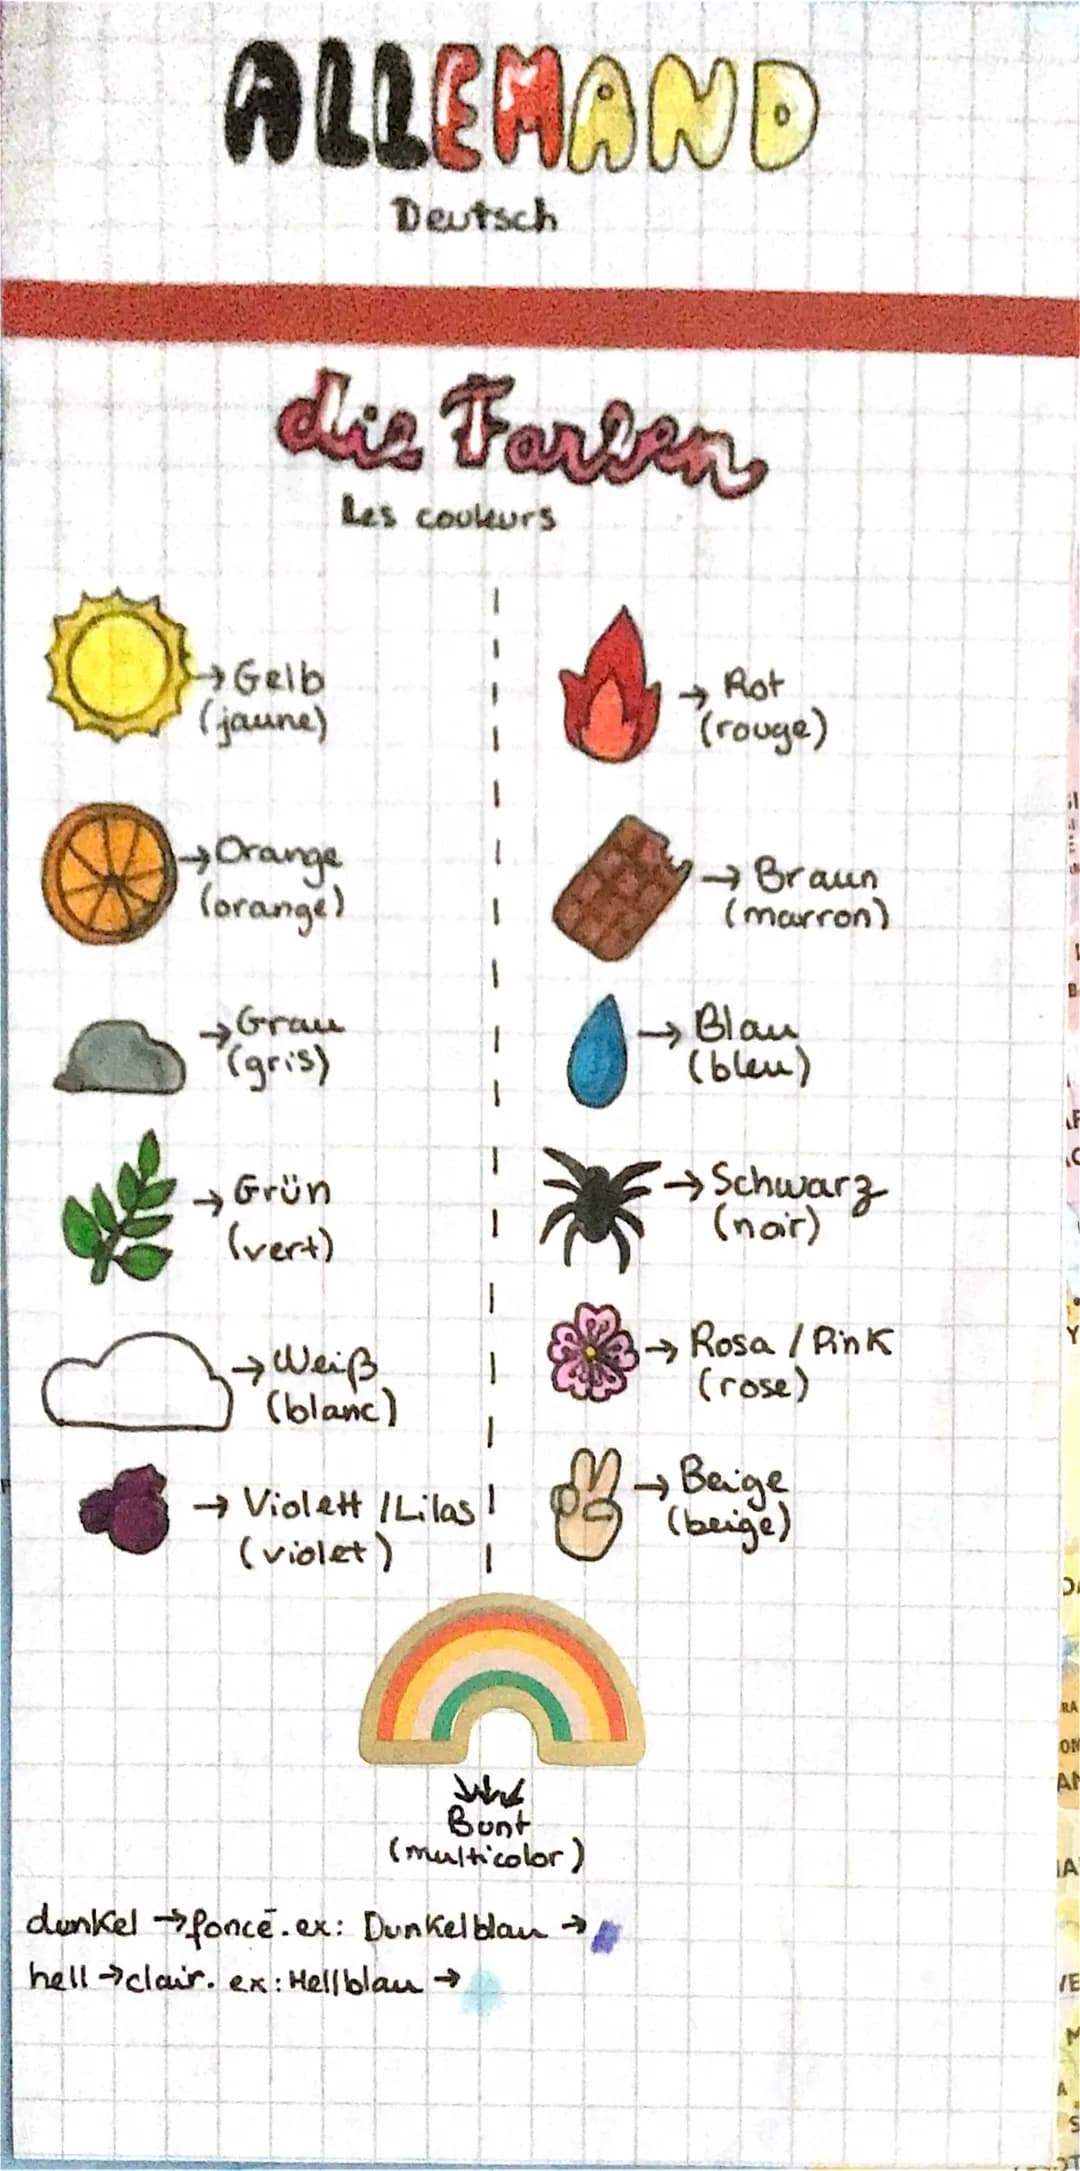 ALLEMAND
Deutsch
die Farben
Les couleurs
→ Gelb
(jaune)
→ Orange
(orange)
→ Grau
(gris)
→ Grün
(vert)
→ Weiß
(blanc)
→ Violett / Lilas
(violet)
→ Rot
(rouge)
→ Braun
(marron)
→ Blau
(bleu)
→ Schwarz
(noir)
→ Rosa / Pink
(rose)
→ Beige
(beige)
Bunt
(multicolor)
dunkel → foncé. ex: Dunkelblau →
hell → clair. ex: Hellblau →